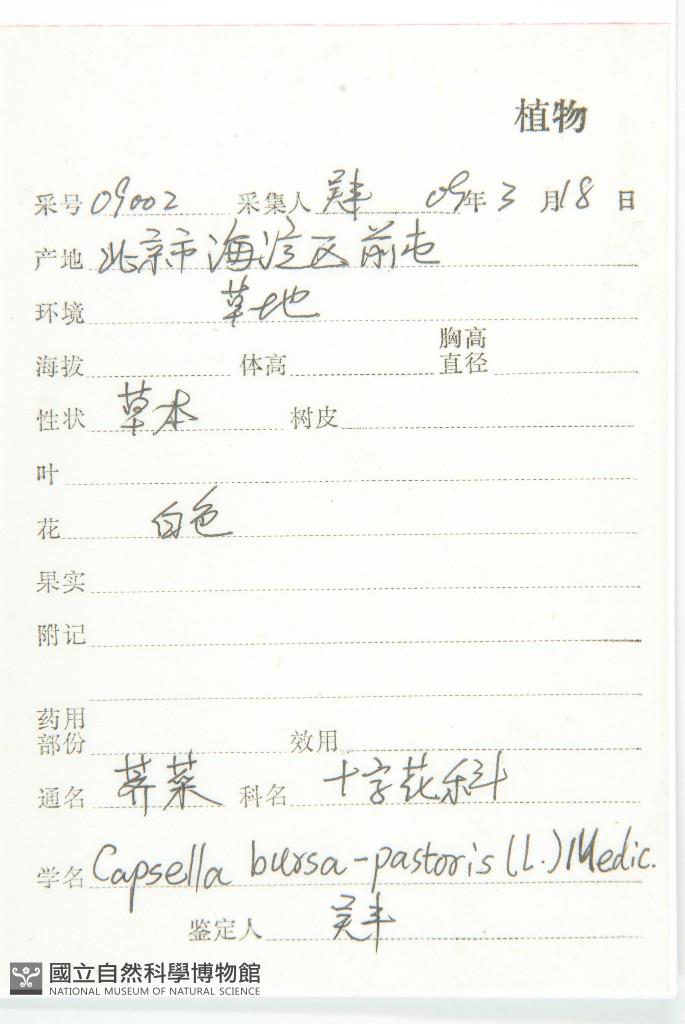 植物
采号 09002 采集人 吴丰 09年 3 月 18 日
产地 北京市海淀区前屯
环境 草地
海拔 体高 胸高直径
性状 草本 树皮
叶
花 白色
果实
附记
药用部份 效用
通名 荠菜 科名 十字花科
学名 Capsella bursa-pastoris (L.) Medic.
鉴定人 吴丰
國立自然科學博物館
NATIONAL MUSEUM OF NATURAL SCIENCE